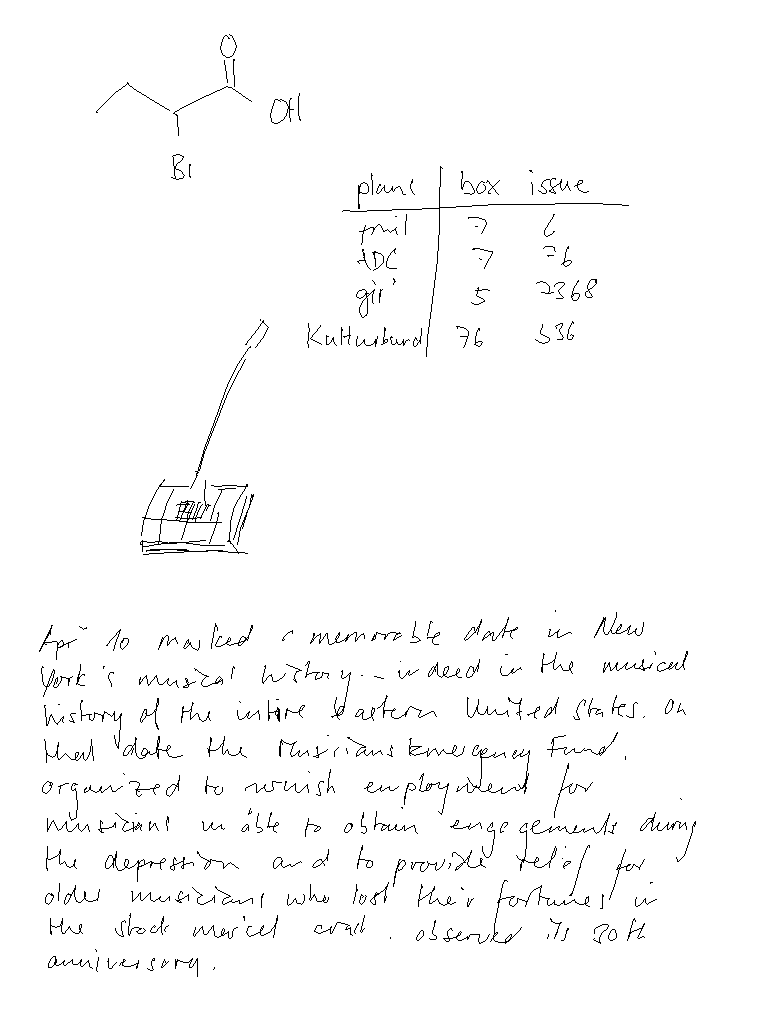 O
OH
Br
box issue
7 6
ADC 7 76
5 2368
76 536
10 marked a memorable date in New
York's musical history - indeed in the musical
history of the intire Eastern United States. On
that date the Musicians Emergency Fund,
organized to employment for
musicians unable to obtain engagements during
the depression and to provide relief for
older musicians who lost their fortunes in
the stock crash. observed its 30th
anniversary.